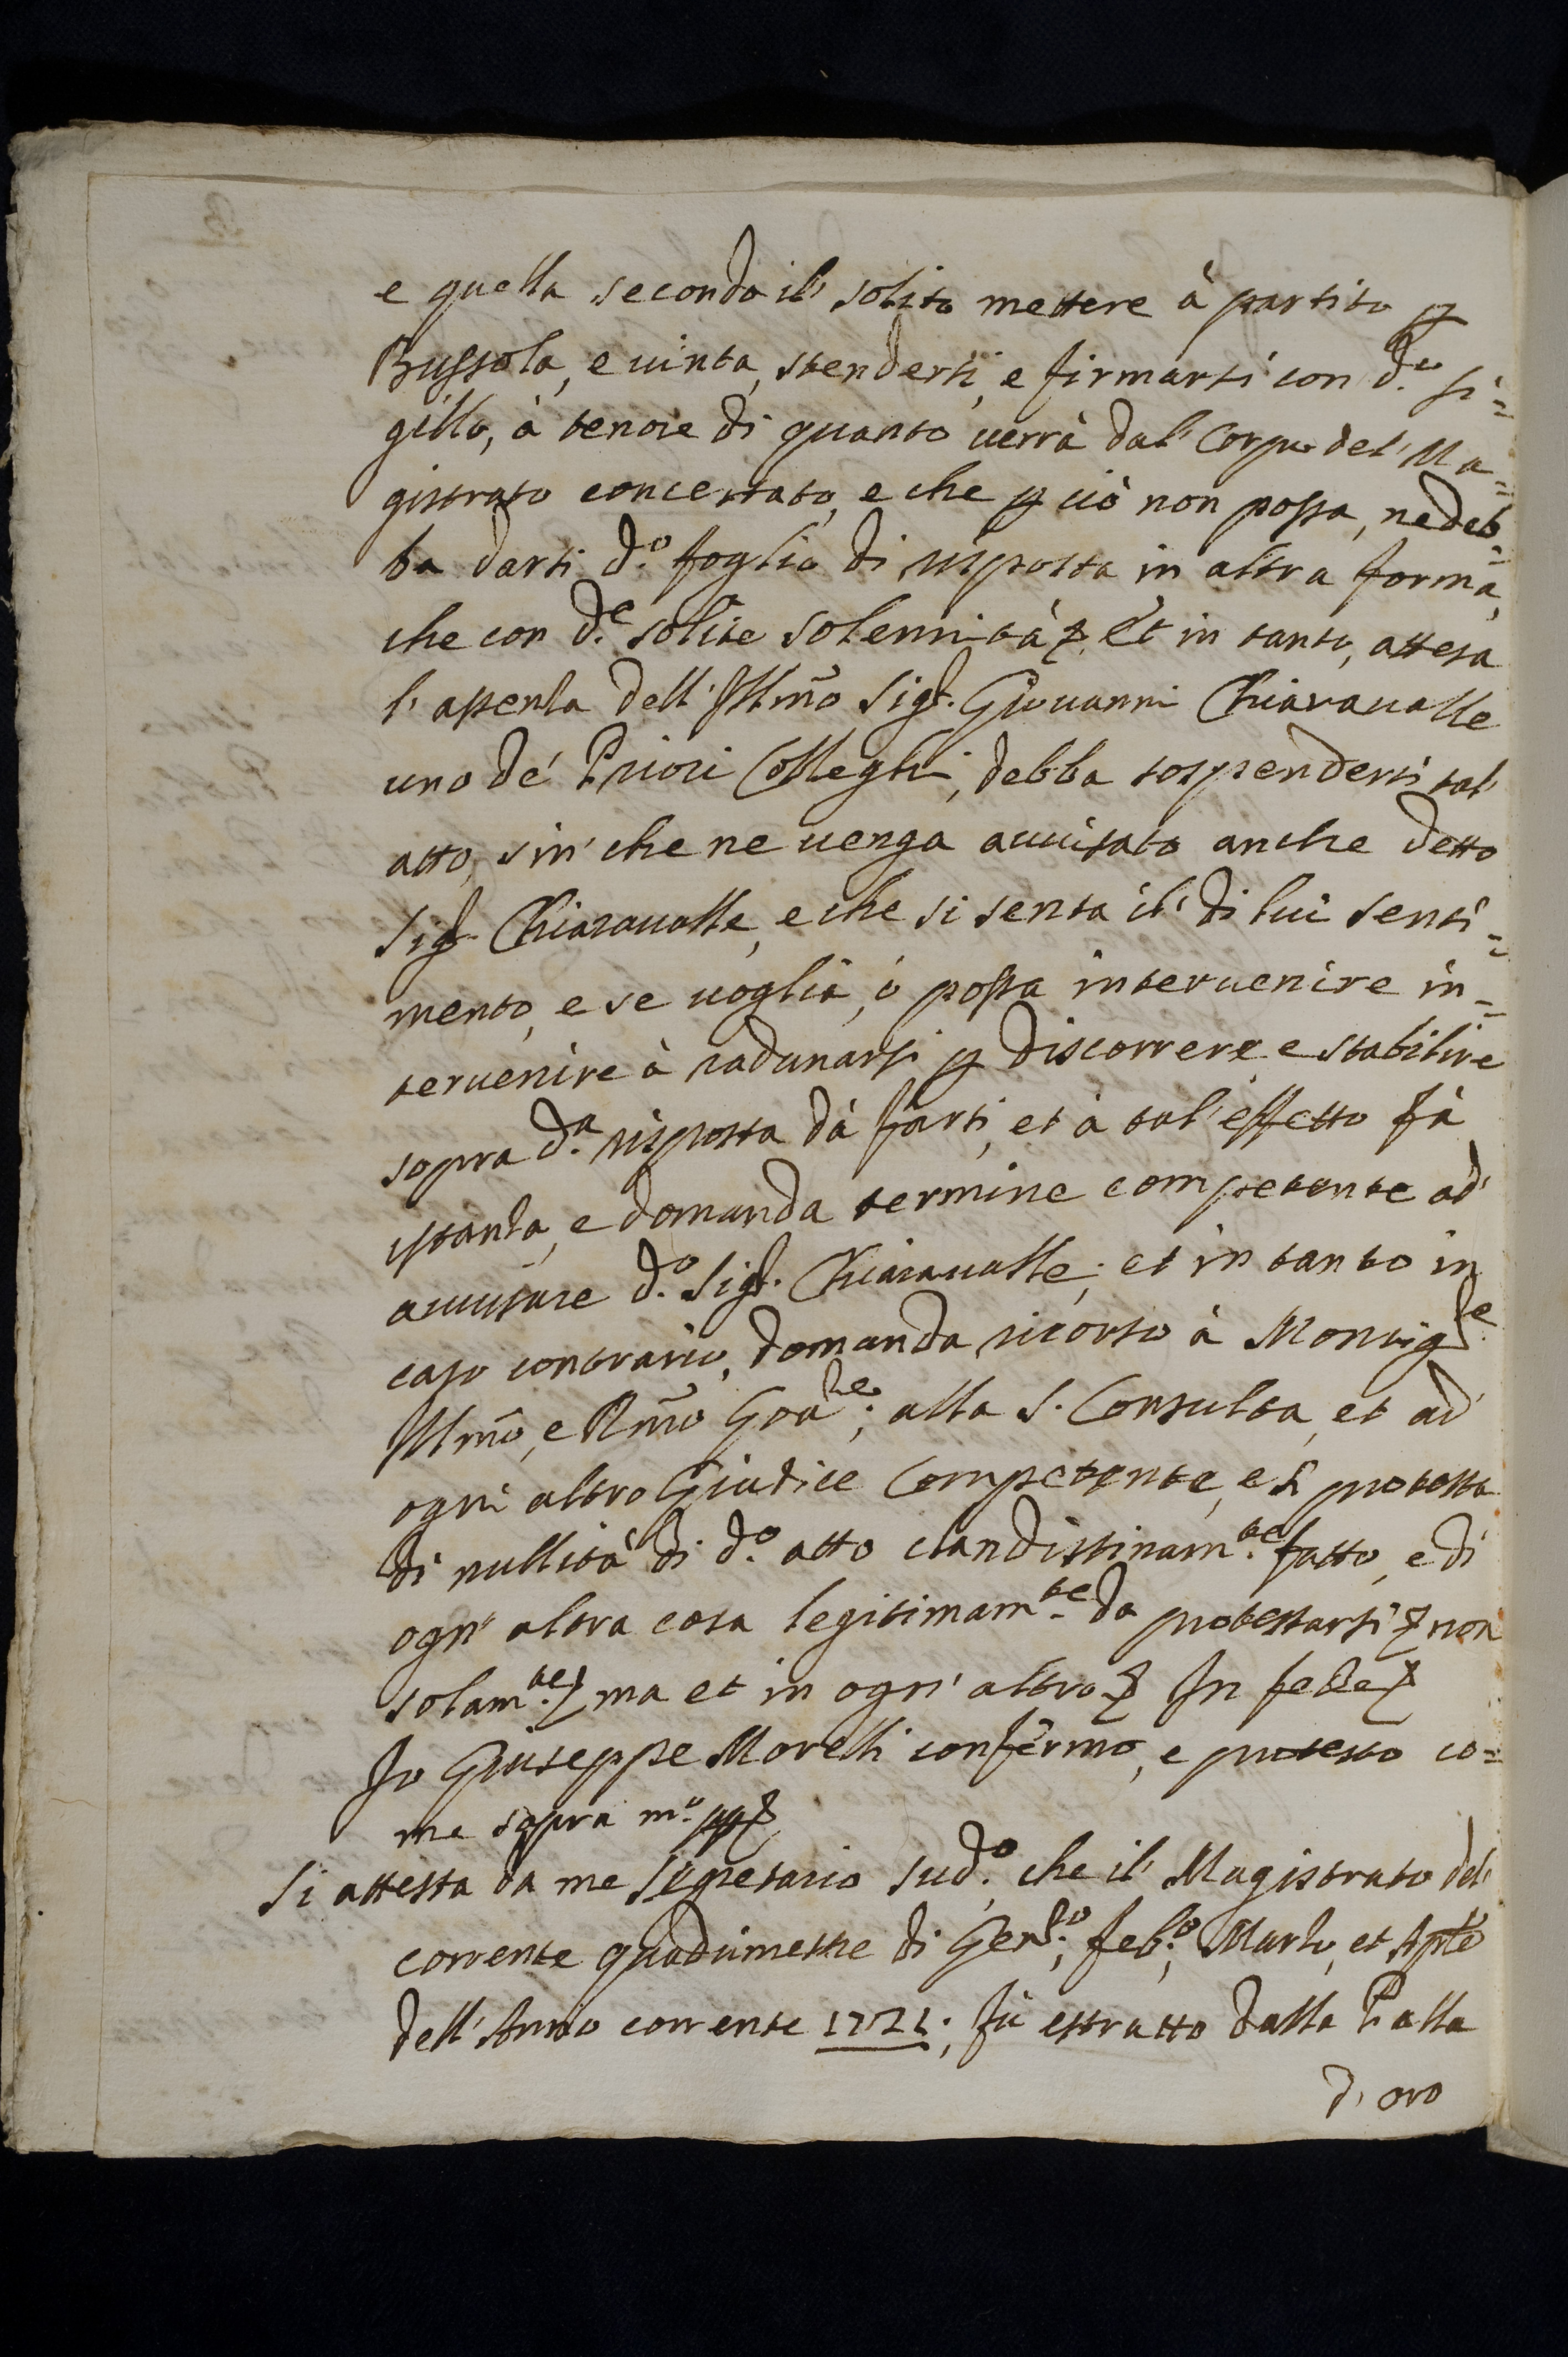 e quella secondo il' solito mettere à partito p
Bussola, e uinta, stendersi, e firmarsi con d.o si=
gillo, à tenore di quanto uerrà dal' Corpo del' Ma=
gistrato concertato, e che p ciò non possa, ne deb=
ba darsi d.o foglio di risposta in altra forma,
che con d.e solite solennità &. Et in tanto, attesa
l'assenza dell'Illmo Sigr. Giouanni Chiaraualle
uno de' Priori Colleghi, debba sospendersi tal'
atto, sin' che ne uenga auuisato anche detto
Sigr. Chiaraualle, e che si senta il' di lui senti=
mento, e se uoglia, ò possa interuenire in=
teruenire à radunarsi p discorrere, e stabilire
sopra d.a risposta dà farsi, et à tal'effetto fà
istanza, e domanda termine competente ad'
auuisare d.o Sigr. Chiaraualle; et in tanto in
caso contrario, domanda ricorso à Monsigre.
Illmo, e Rmo Goure.; alla S. Consulta, et ad'
ogni altro Giudice Competente, e si protesta
di nullità di d.o atto clandistinam.te fatto, e di
ogn' altra cosa legitimam.te da protestarsi & non
solam.te & ma et in ogn' altro & In fede &
Io Giuseppe Morelli confermo, e protesto co=
me sopra m.o pp &
Si attesta da me Segretario sud.o, che il' Magistrato del'
corrente quadrimestre di Genro., Feb.o, Marzo, et Aple
dell'Anno corrente 1721., fù estratto dalla Palla
d'oro